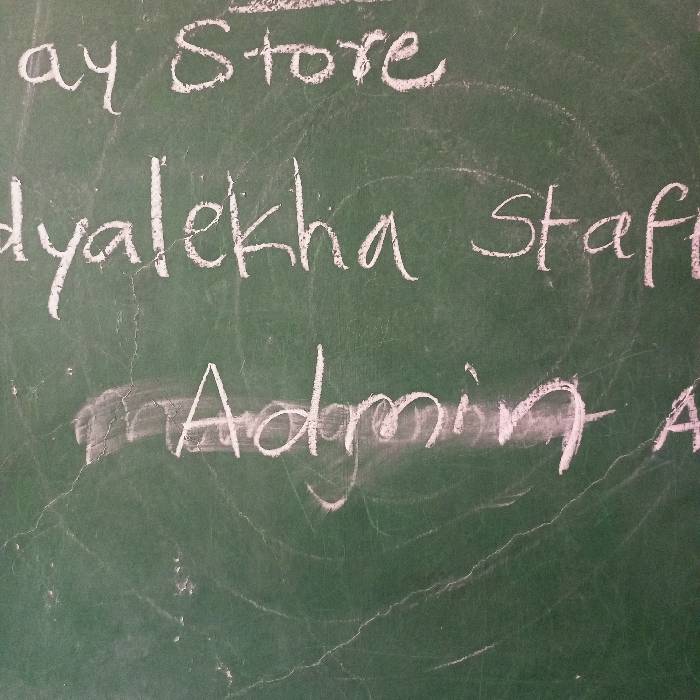 ay Store
dyalekha Staff
Admin A